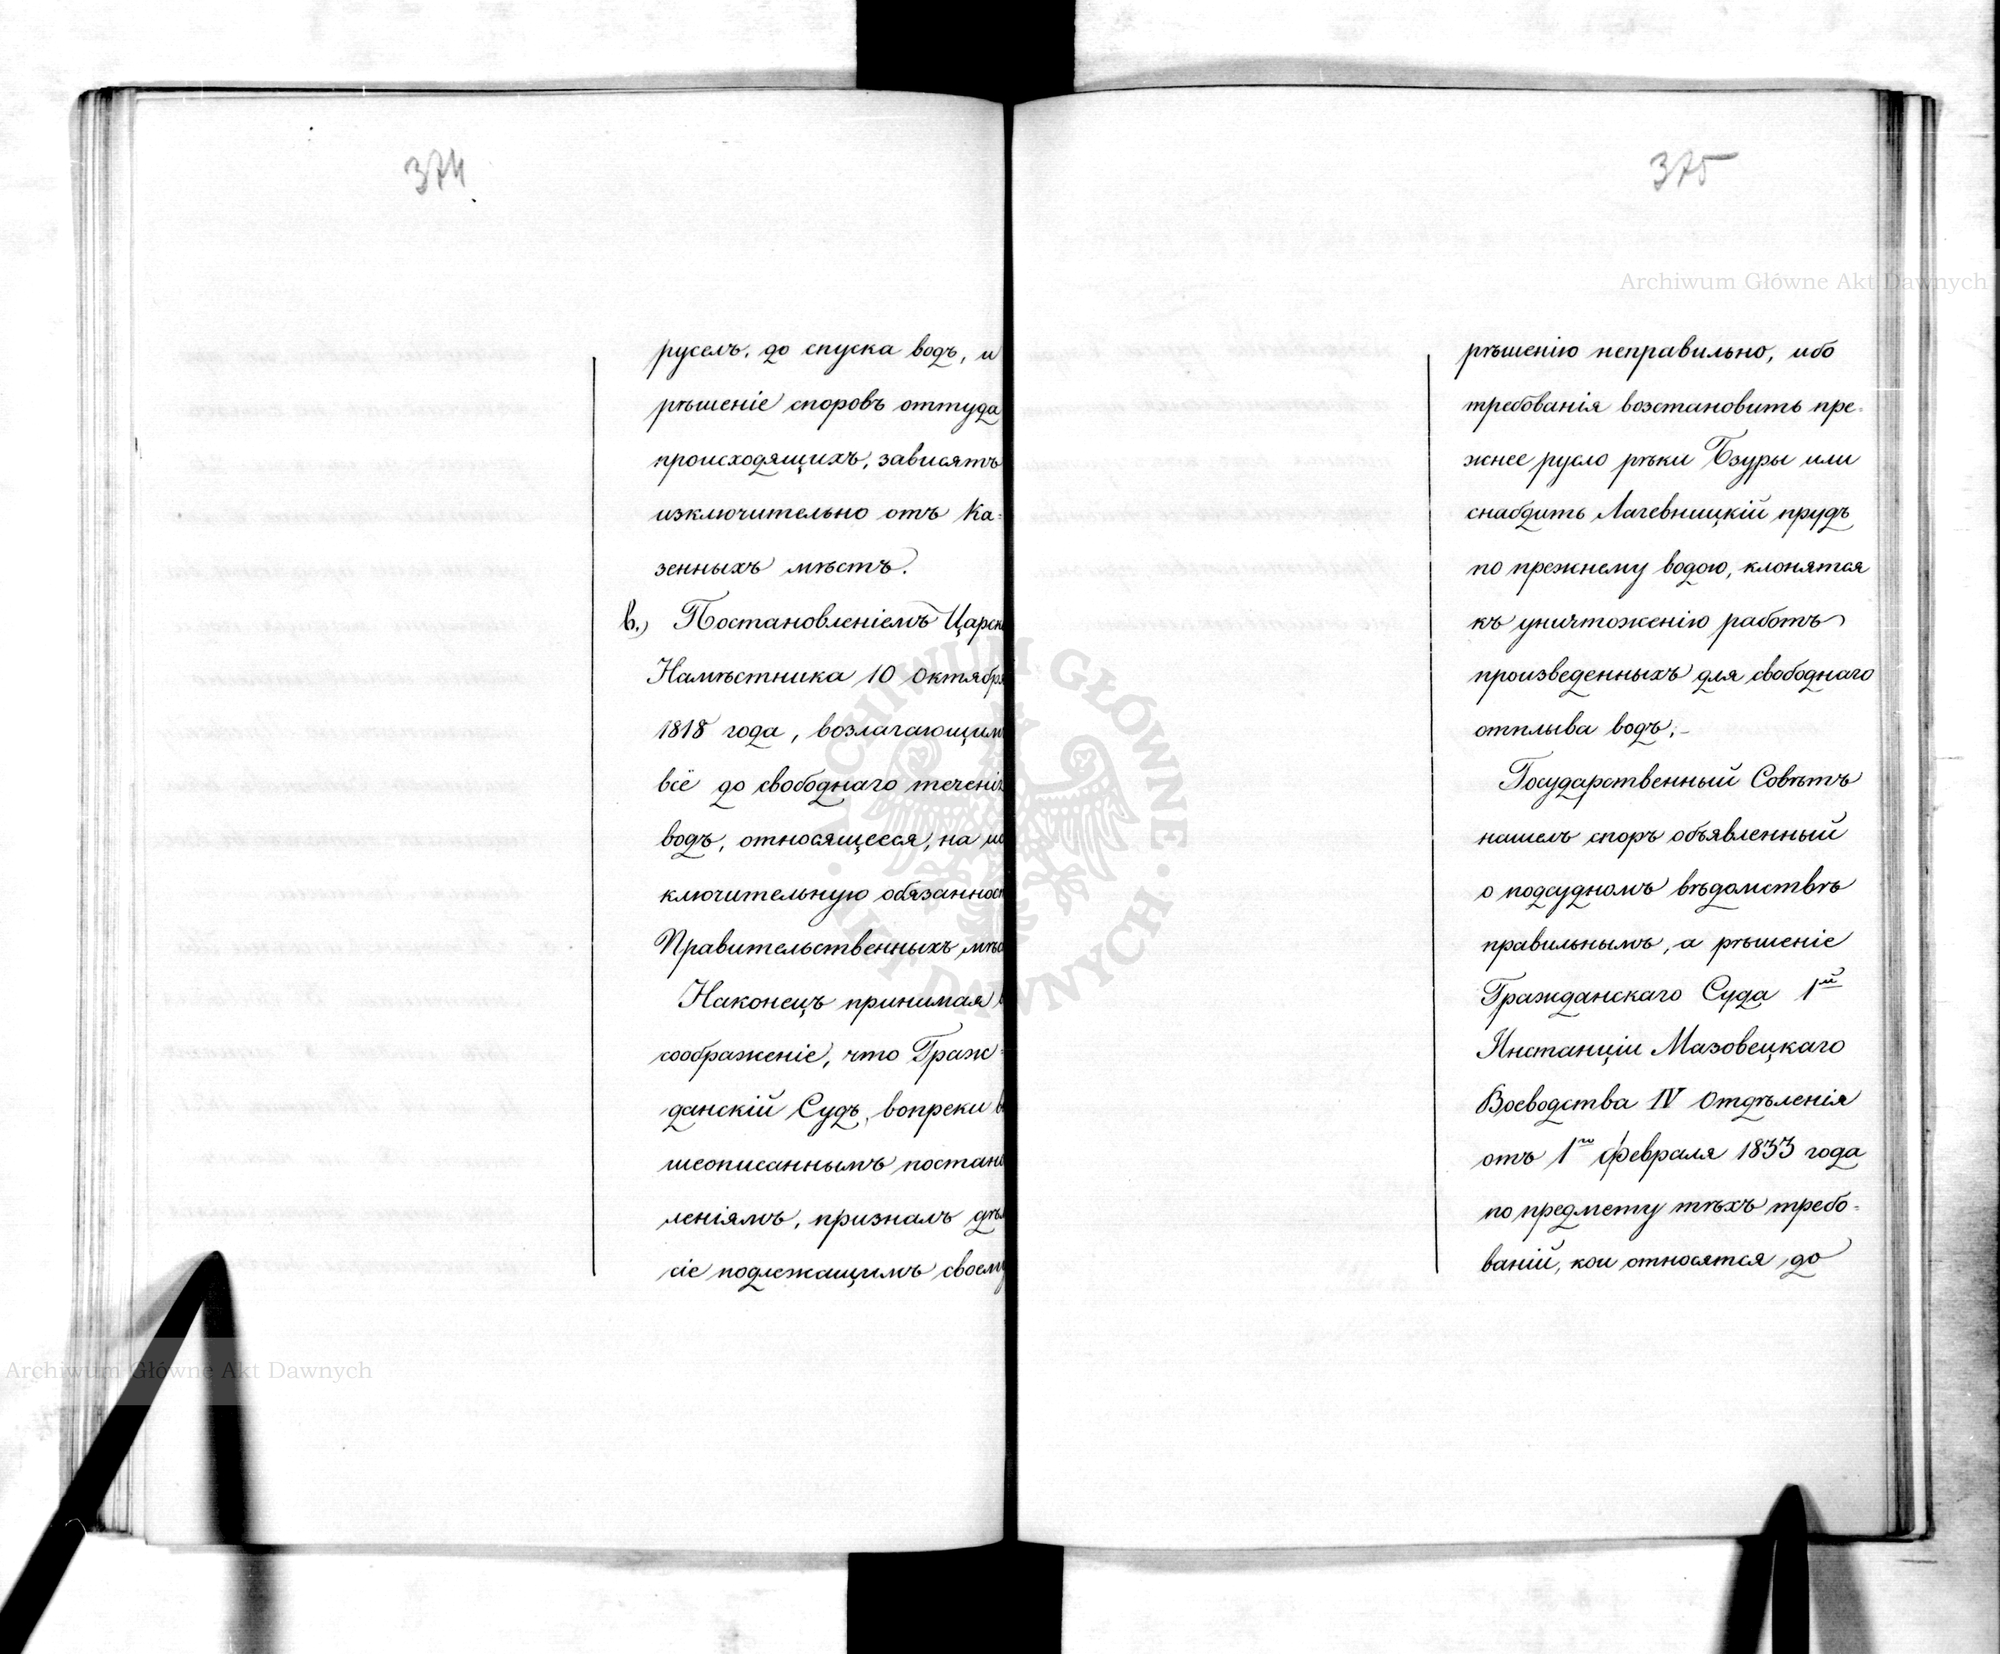 374
руселъ, до спуска водъ, и
рѣшеніе споровъ оттуда
происходящихъ, зависятъ
изключительно отъ Ка=
зенныхъ мѣстъ.
в.) Постановленіемъ Царск
Намѣстника 10 Октября
1818 года, возлагающим
всё до свободнаго теченія
водъ, относящееся, на ис
ключительную обязанност
Правительственныхъ мѣс
Наконецъ принимая в
соображеніе, что Граж=
данскій Судъ, вопреки в
шеописаннымъ постано
леніямъ, призналъ дѣл
сіе подлежащимъ своему
375
рѣшенію неправильно, ибо
требованія возстановить пре=
жнее русло рѣки Бзуры или
снабдить Лагевницкій прудъ
по прежнему водою, клонятся
къ уничтоженію работъ
произведенныхъ для свободнаго
отплыва водъ;-
Государственный Совѣтъ
нашелъ споръ объявленный
о подсудномъ вѣдомствѣ
правильнымъ, а рѣшеніе
Гражданскаго Суда 1й
Инстанціи Мазовецкаго
Воеводства IV Отдѣленія
отъ 1го Февраля 1833 года
по предмету тѣхъ требо=
ваній, кои относятся до
Archiwum Główne Akt Dawnych
Archiwum Główne Akt Dawnych
ARCHIWUM GŁÓWNE · AKT DAWNYCH ·